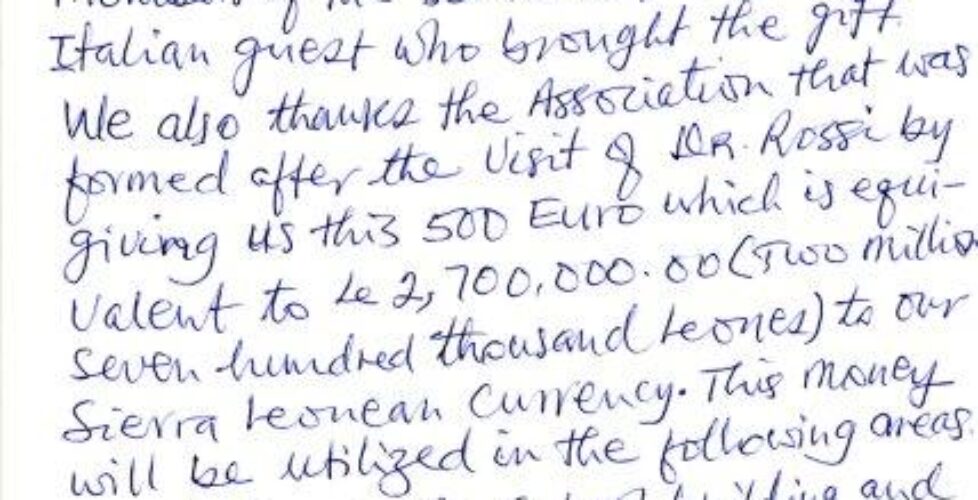 Italian guest who brought the gift
We also thanks the Association that was
formed after the Visit of DR. Rossi by
giving us this 500 Euro which is equi-
valent to Le 2,700,000.00 (Two million
seven hundred thousand Leones) to our
Sierra Leonean Currency. This money
will be utilized in the following areas.
and